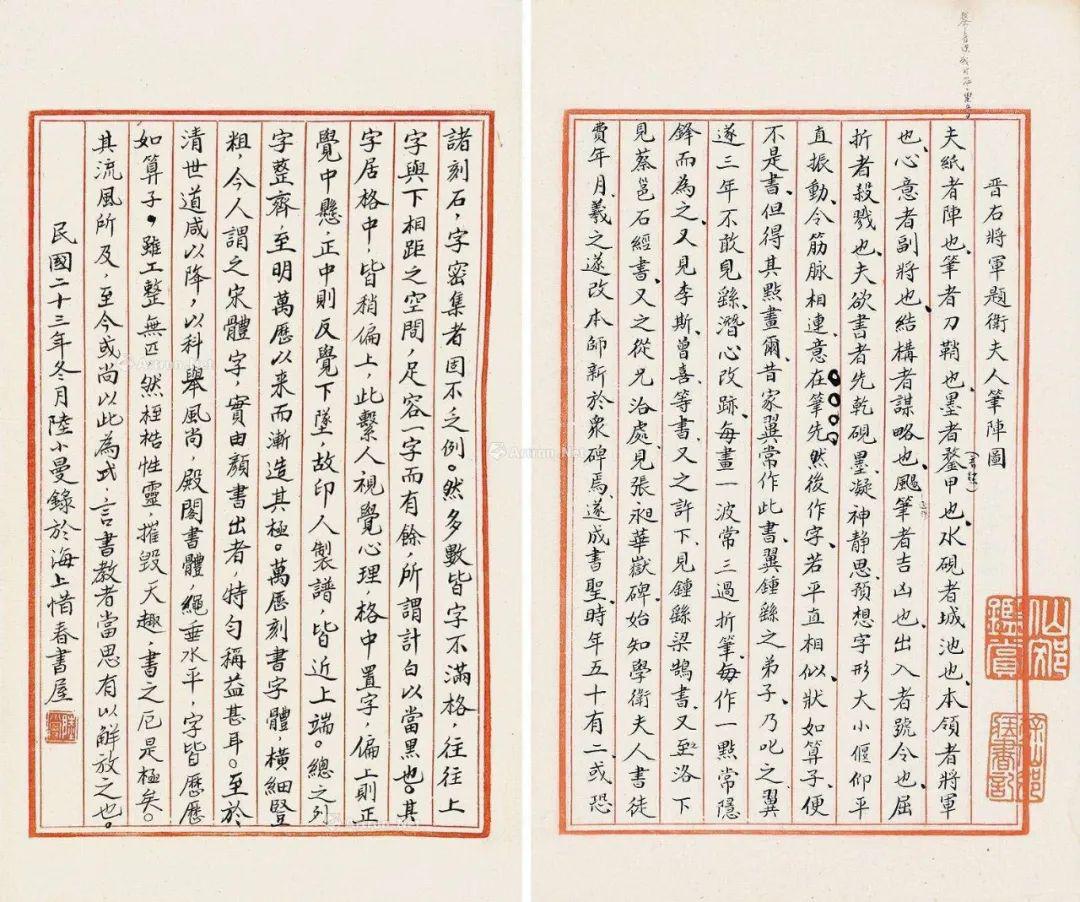 晋右將軍題衛夫人筆陣圖
夫紙者陣也、筆者刀鞘也、墨者鍪甲也、水硯者城池也、本領者將軍
也、心意者副將也、結構者謀略也、颺筆者吉凶也、出入者號令也、屈
折者殺戮也、夫欲書者先乾硯墨、凝神靜思、預想字形大小偃仰平
直振動、令筋脉相連、意在筆先、然後作字、若平直相似、狀如算子、便
不是書、但得其點畫爾、昔宋翼常作此書、翼鍾繇之弟子、乃叱之、翼
遂三年不敢見繇、潛心改跡、每畫一波常三過折筆、每作一點常隱
鋒而為之、又見李斯、曾喜、等書、又之許下、見鍾繇梁鵠書、又至洛下
見蔡邕石經書、又之從兄洽處、見張昶華嶽碑、始知學衛夫人書徒
費年月、羲之遂改本師、新於衆碑焉、遂成書聖、時年五十有二、或恐
諸刻石，字密集者固不乏例。然多數皆字不滿格，往往上
字與下相距之空間，足容一字而有餘，所謂計白以當黑也。其
字居格中，皆稍偏上，此繫人視覺心理，格中置字，偏上則正
覺中懸，正中則反覺下墜，故印人製譜，皆近上端。總之列
字整齊，至明萬歷以来而漸造其極。萬歷刻書字體，横細豎
粗，今人謂之宋體字，實由顏書出者，特勻稱益甚耳。至於
清世道咸以降，以科舉風尚，殿閣書體，繩垂水平，字皆歷歷
如算子。雖工整無匹，然桎梏性靈，摧毀天趣，書之厄是極矣。
其流風所及，至今或尚以此為式，言書教者當思有以解放之也。
民國二十三年冬月陸小曼錄於海上惜春書屋